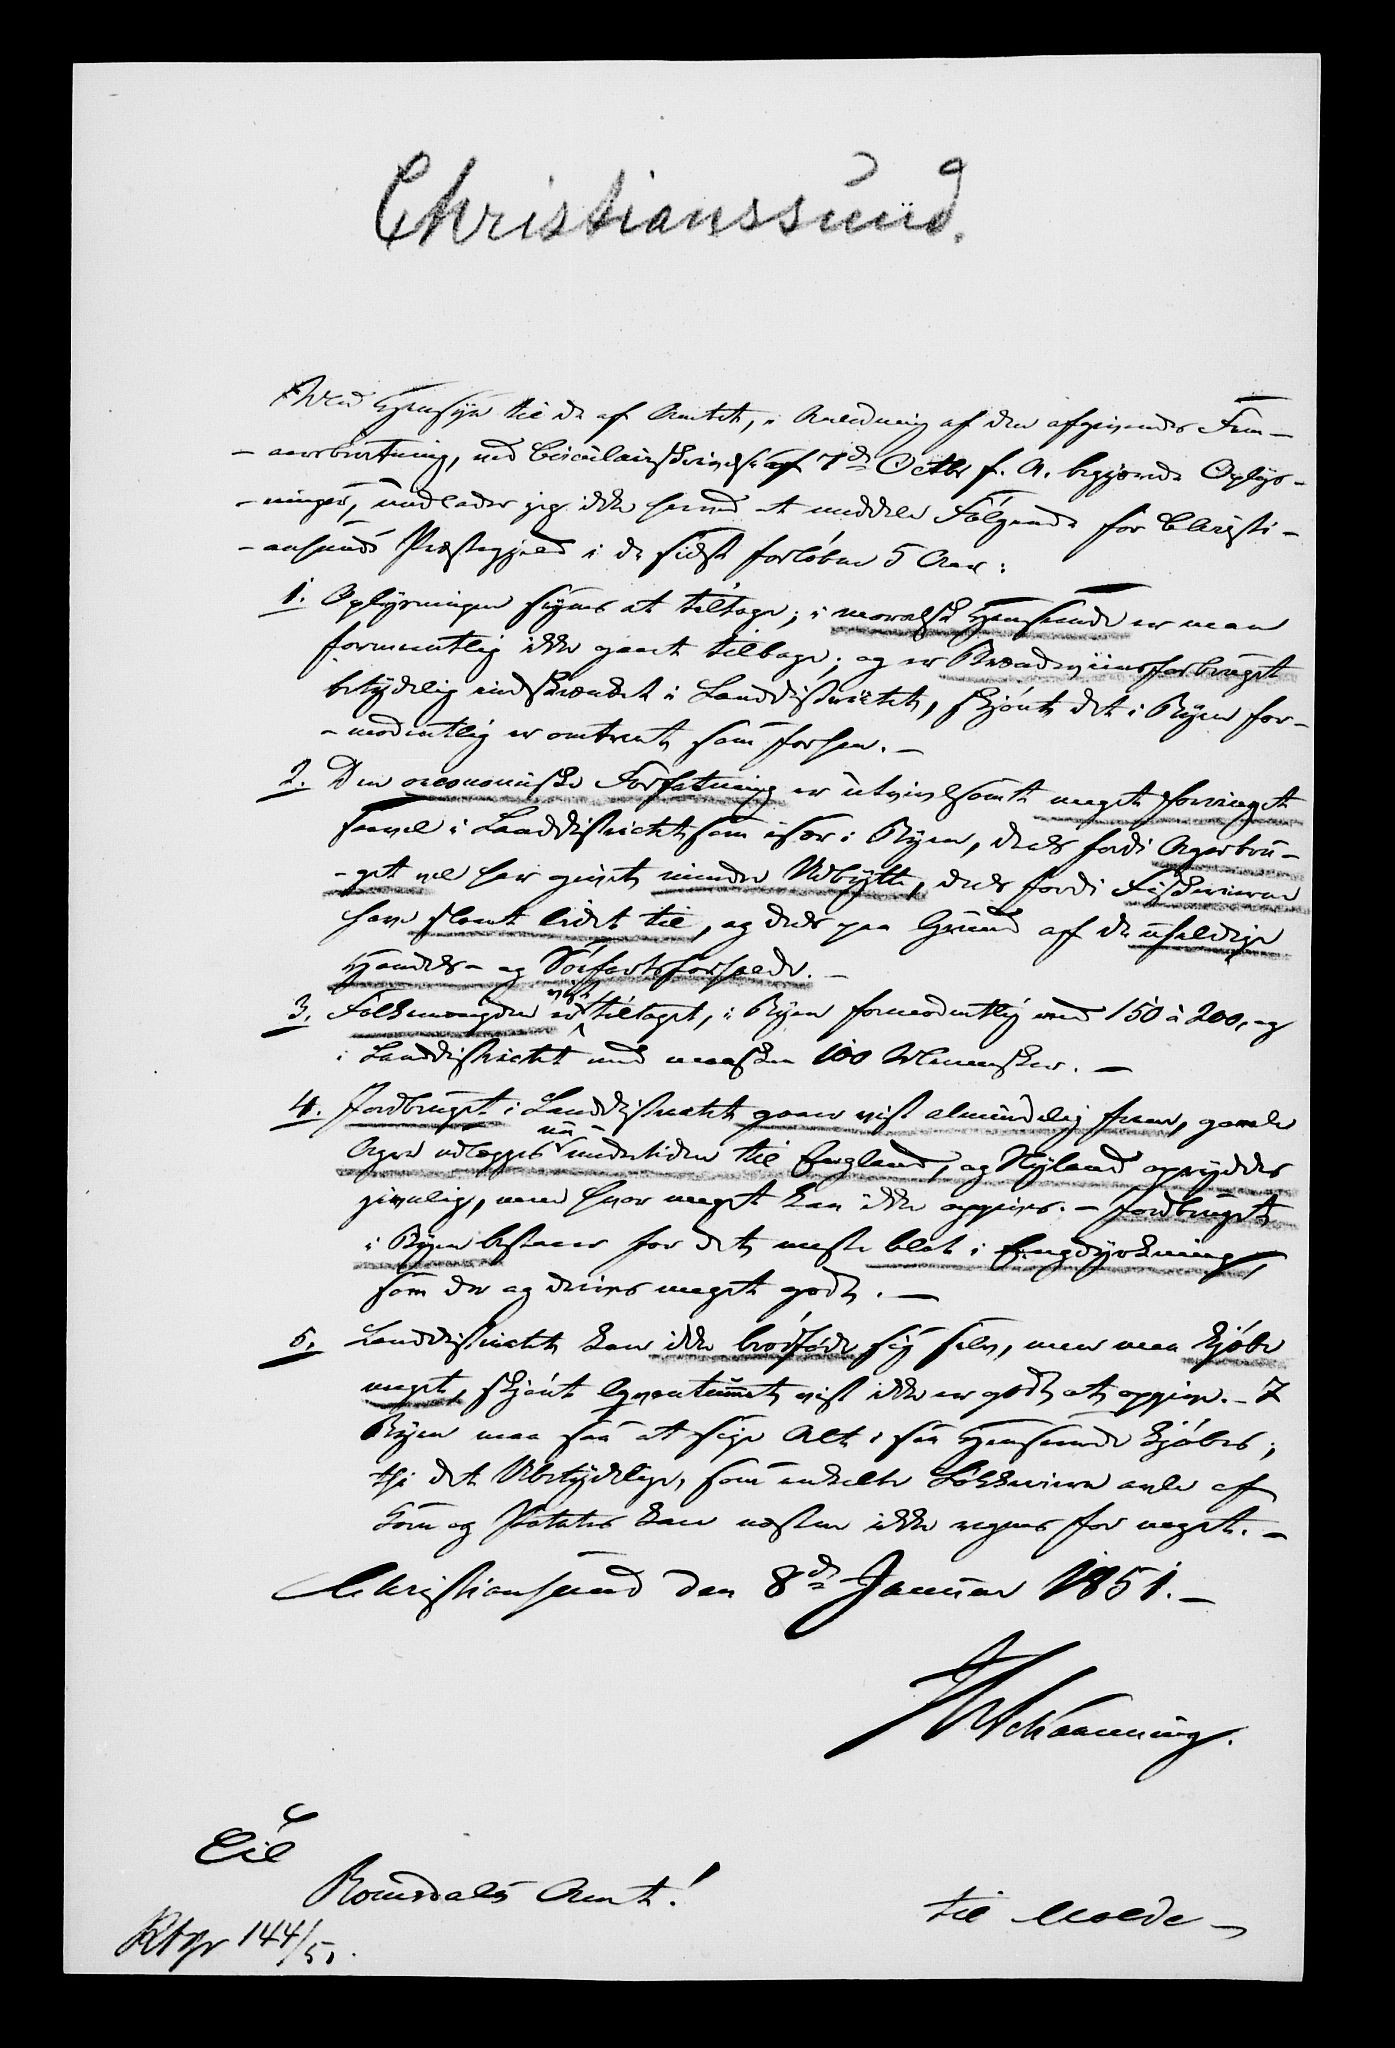 Christianssund.
Med Hensyn til de af Amtet, i Anledning af den afgivende Fem-
-aarsberetning, ved Circulairskrivelse af 7de Octbr f. A. begjærede Oplys-
-ninger, undlader jeg ikke herved at meddele Følgende for Christi-
-ansunds Præstegjeld i de sidst forløbne 5 Aar:
1. Oplysningen synes at tiltage; i moralsk Henseende er man
formentlig ikke gaaet tilbage; og er Brændeviinsforbruget
betydelig indskrænket i Landdistrictet, skjönt det i Byen for-
-modentlig er omtrent som forhen. —
2. Den oeconomiske Forfatning er utvivlsomt meget forringet
saavel i Landdistrictet som især i Byen, deels fordi Agerbru-
-get vel har givet mindre Udbytte, deels fordi Fiskerierne
have slaaet lidet til, og deels paa Grund af de uheldige
Handels- og Söefartsforholde. —
3. Folkemængden er vist tiltaget, i Byen formodentlig med 150 à 200, og
i Landdistrictet med maaskee 100 Mennesker. —
4. Jordbruget i Landdistrictet gaaer vist almindelig frem, gamle
Agre udlægges nu undertiden til England, og Nyland opryddes
jevnlig, men hvor meget kan ikke opgives. – Jordbruget
i Byen bestaaer for det meste blot i Engdyrkning,
som der og drives meget godt. —
5. Landdistrictet kan ikke brödföde sig selv, men maa kjöbe
meget, skjönt Qvantummet vist ikke er godt at opgive. – I
Byen maa saa at sige Alt i saa Henseende kjöbes;
thi det Ubetydelige, som enkelte Løkkeeiere avle af
Korn og Potetes kan næsten ikke regnes for noget. —
Christiansund den 8de Januar 1851. —
Schaanning.
Til
Romsdals Amt!
til Molde —
144/51.